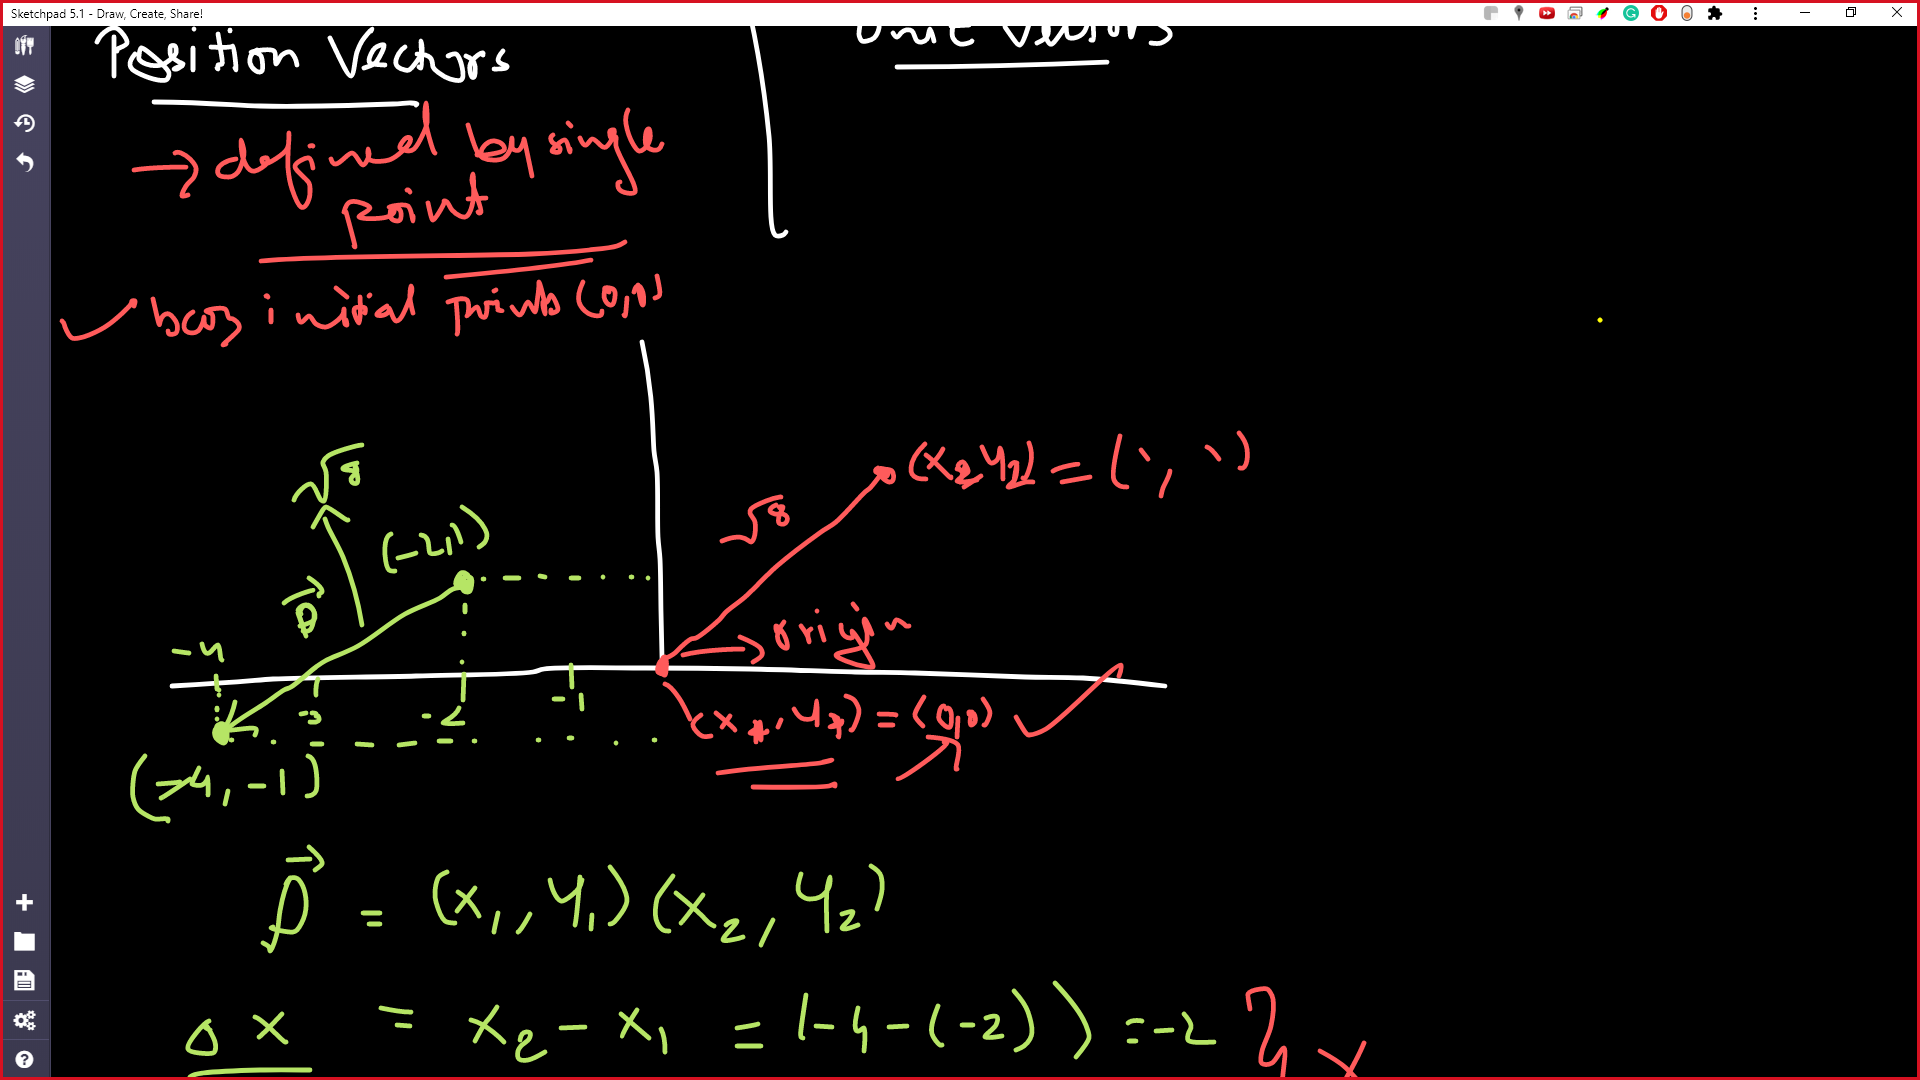 Sketchpad 5.1 - Draw, Create, Share!
Position Vectors
Unit Vectors
→ defined by single
point
✓ bcoz initial points (0,0)
√8
(x2 y2) = ( , )
√8
(-2,1)
D
→ origin
-4
-3
-2
-1
(x , y ) = (0,0) ✓
(-4, -1)
D = (x1, y1) (x2, y2)
Δx = x2 - x1 = (-4-(-2)) = -2